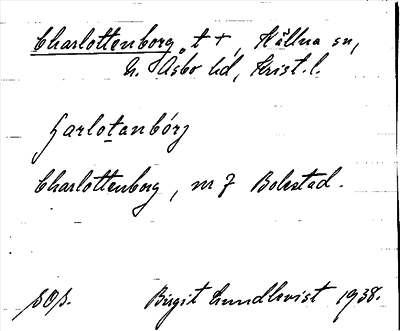 Charlottenborg, t +, Källna sn,
N. Åsbo hd, Krist. l.
Charlottenborg, m f Bolestad.
Birgit Lundkvist 1938.